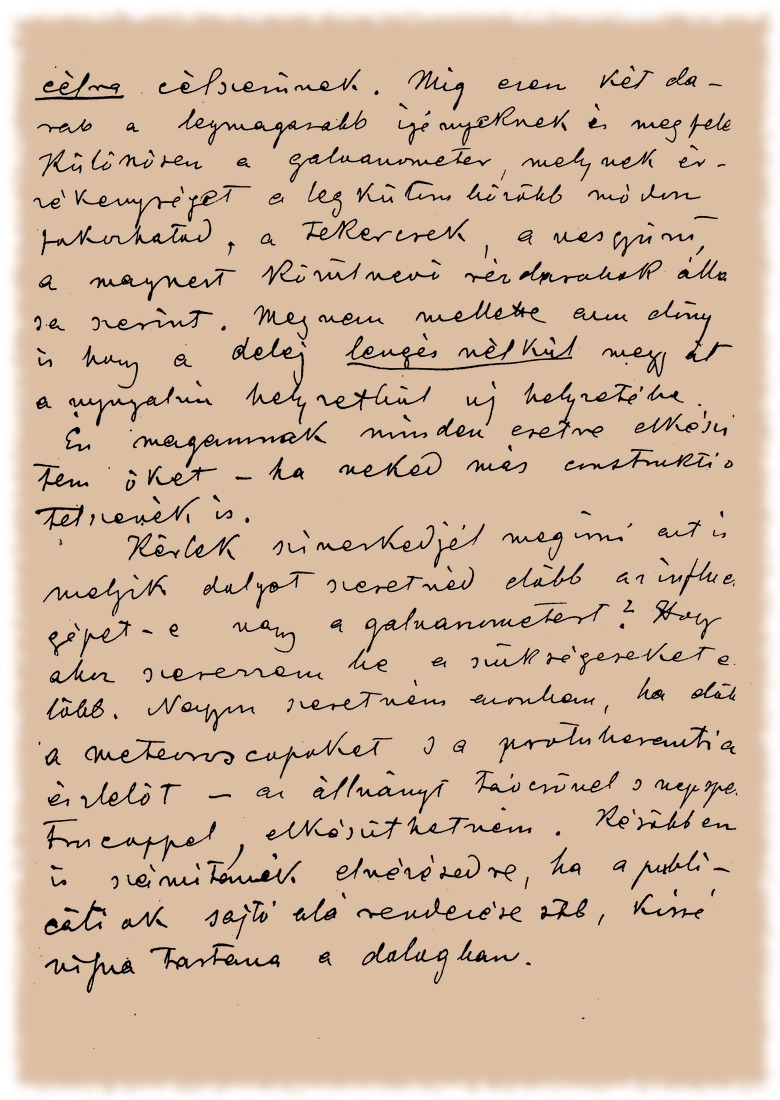 célra célszerünek. Mig ezen két da-
rab a legmagasabb igényeknek is megfele
Különösen a galvanometer, melynek ér-
zékenységét a legkülömbözöbb módon
fokozhatod, a tekercsek, a vasgyürü,
a magnest körülvevö rézdarabok állá
sa szerint. Megnem mellette azon elöny
is hogy a delej lengés nélkül megy át
a nyugalmi helyzetböl uj helyzetébe.
Én magamnak minden esetre elkészi
tem öket – ha neked más constructio
tetszenék is.
Kérlek szíveskedjél megirni azt is
melyik dolgot szeretnéd elöbb az influe
gépet-e vagy a galvanometert? Hogy
akor szerezzem be a szükségeseket e
löbb. Nagyon szeretném azonban, ha elöb
a meteoroscopokat s a protuberantia
észlelöt – az állványt távcsövel s nagyspe
troscoppel, elkészithetném. Késöbben
is számitanék elnézésedre, ha a publi-
catiok sajtó alá rendezése stb, kissé
vissza tartana a dologban.